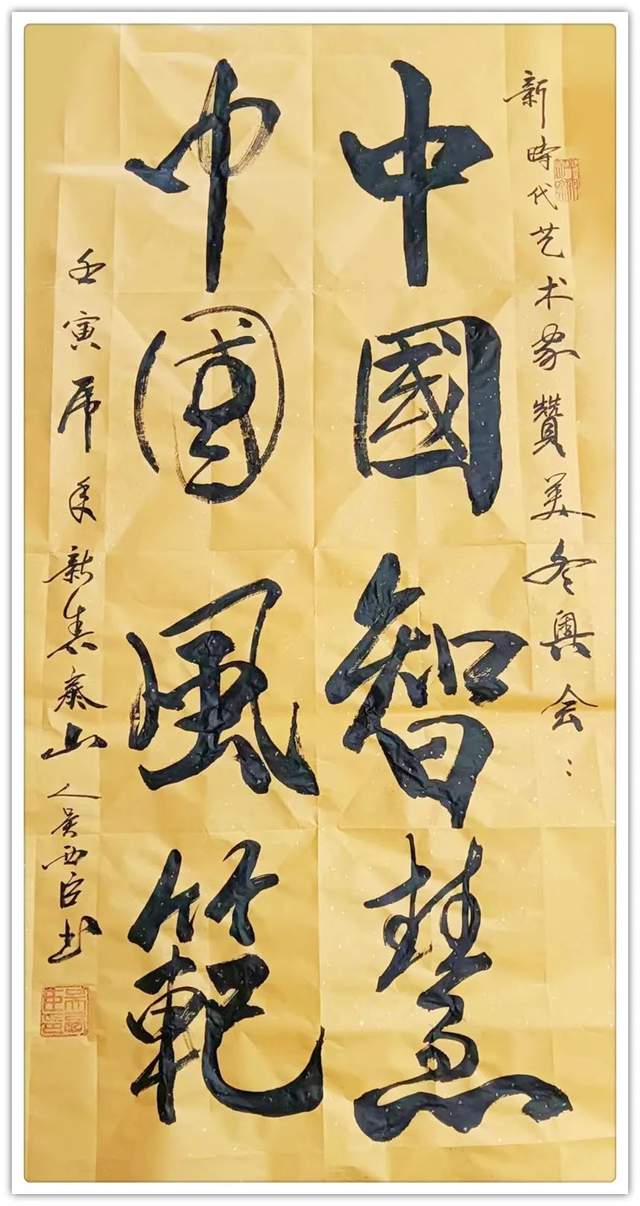 新時代艺术家贊美冬奥会：
中國智慧
中國風範
壬寅虎年新春泰山人吴西臣书